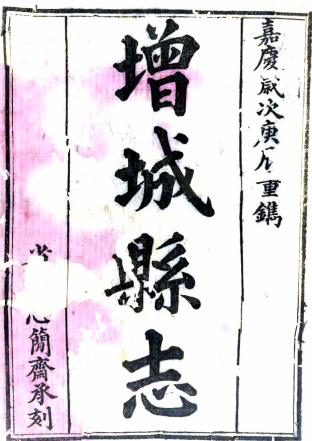 嘉慶歲次庚辰重鐫
增城縣志
心簡齋承刻